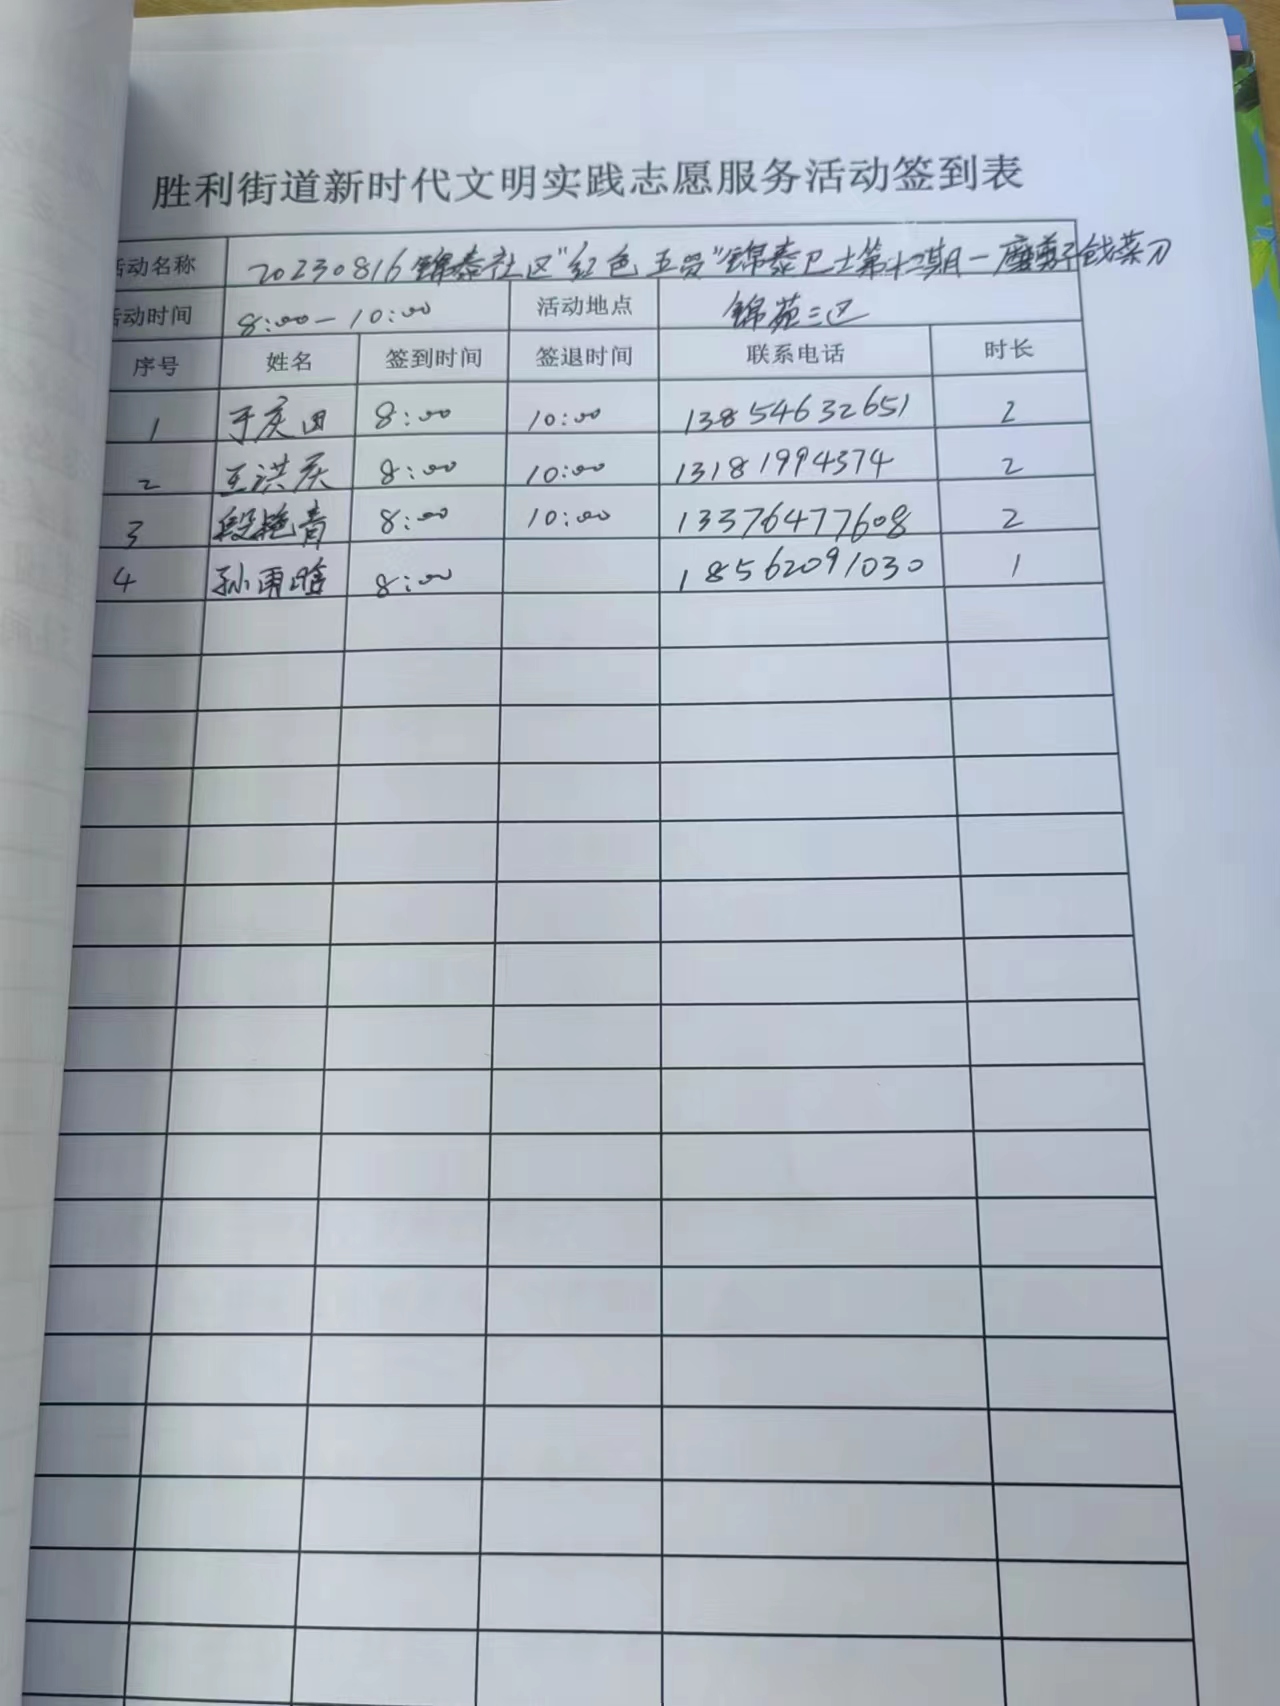 胜利街道新时代文明实践志愿服务活动签到表
活动名称 20230816锦泰社区"红色五员"锦泰巴士第十二期—磨剪子戗菜刀
活动时间 8:00-10:00 活动地点 锦苑三区
序号 姓名 签到时间 签退时间 联系电话 时长
1 于庆田 8:00 10:00 13854632651 2
2 王洪庆 8:00 10:00 13181994374 2
3 段艳青 8:00 10:00 13376477608 2
4 孙雨晗 8:00 18562091030 1